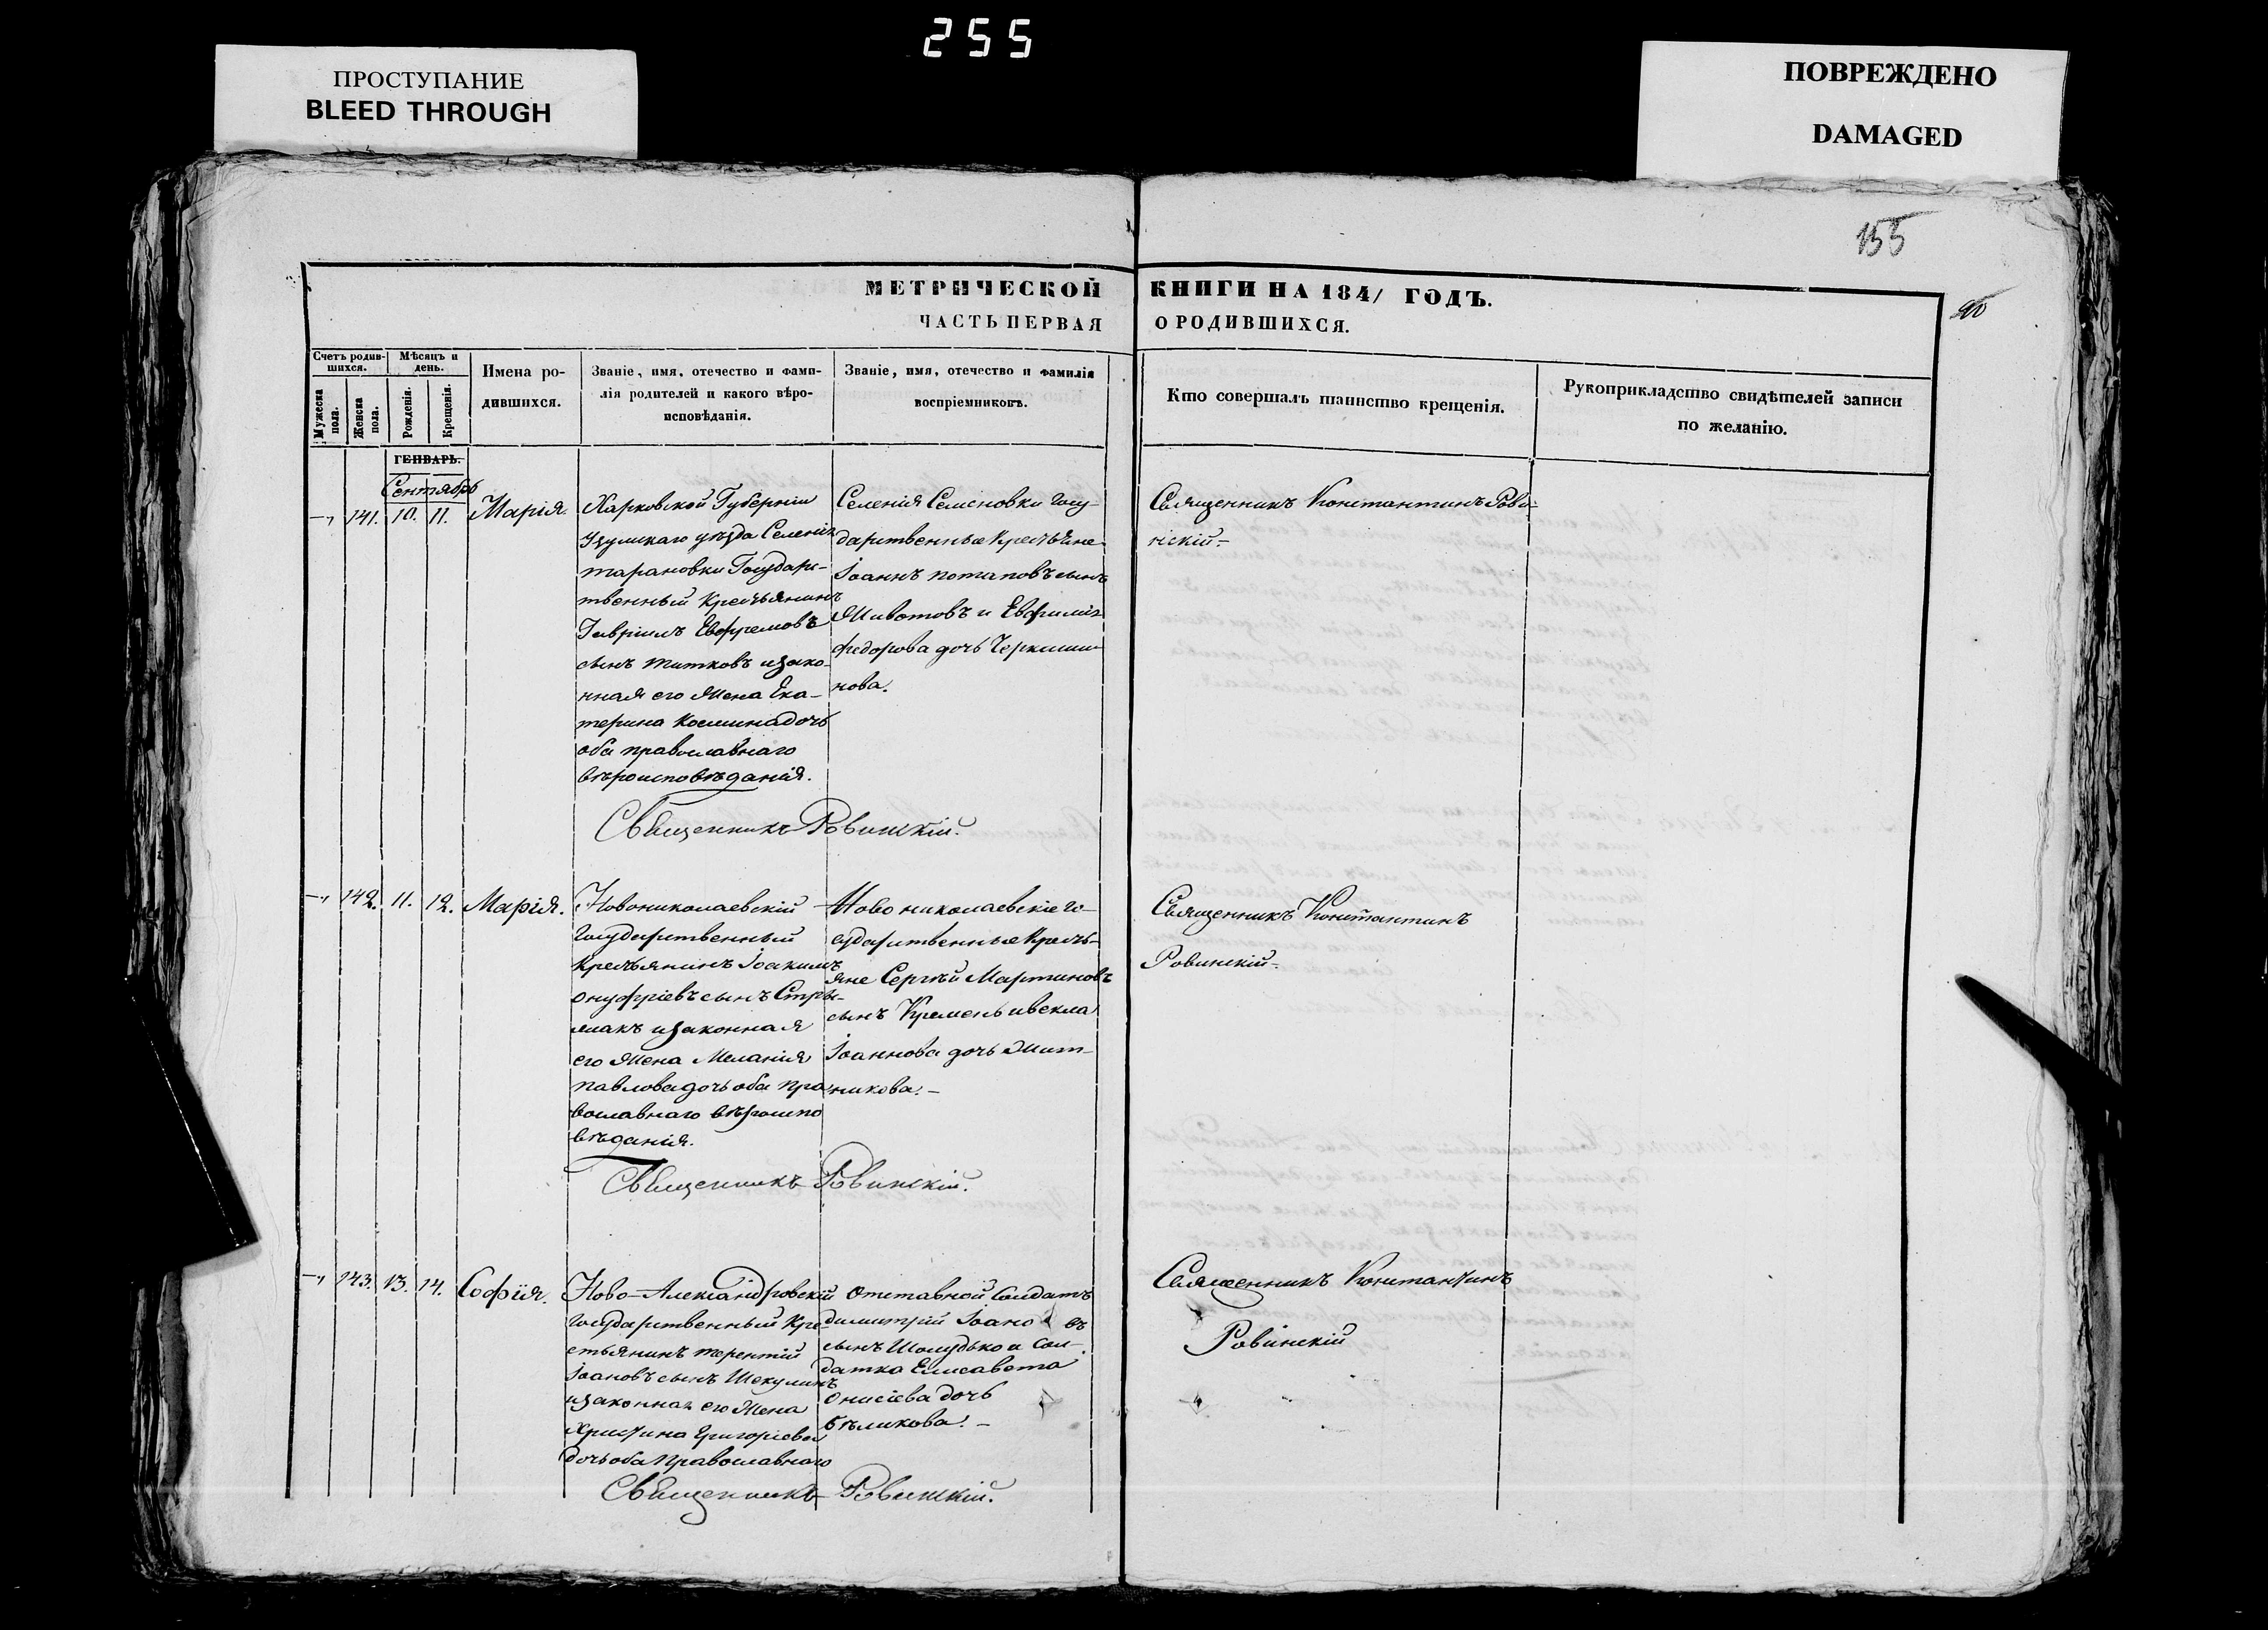 255
ПРОСТУПАНИЕ
BLEED THROUGH
ПОВРЕЖДЕНО
DAMAGED
155
МЕТРИЧЕСКОЙ КНИГИ НА 1841 ГОДЪ.
ЧАСТЬ ПЕРВАЯ О РОДИВШИХСЯ.
Счетъ родив-
шихся.
Мужеска
пола.
Женска
пола.
Мѣсяцъ и
день.
Рожденія.
Крещенія.
Имена ро-
дившихся.
Званіе, имя, отечество и фами-
лія родителей и какого вѣро-
исповѣданія.
Званіе, имя, отечество и фамилія
воспріемниковъ.
Кто совершалъ таинство крещенія.
Рукоприкладство свидѣтелей записи
по желанію.
ГЕНВАРЬ.
Сентябрь
141. 10. 11. Марія.
Харковской Губерніи
Изумскаго уѣзда Селенія
тарановки Государс-
твенный Крестьянинъ
Гавріилъ Евфремовъ
сынъ Титковъ изако-
нная его Жена Ека-
терина Космина дочь
оба православнаго
вѣроисповѣданія.
Селенія Семеновки Госу-
дарственные Крестьяне
Іоаннъ потаповъ сынъ
Животовъ и Евфимія
федорова дочь Черкаши-
нова.
Священникъ Константинъ Рови-
нскій-
Священникъ Ровинскій.
142. 11. 12. Марія.
Новониколаевскій
Государственный
Крестьянинъ Іоакимъ
онуфріевъ сынъ Стры-
жакъ изаконная
его Жена Меланія
павлова дочь оба пра
вославнаго вѣроиспо
вѣданія.
Ново николаевскіе Го-
сударственные Кресть-
яне Сергѣй Мартиновъ
сынъ Кремень ивекла
Іоаннова дочь Жит-
никова.-
Священникъ Константинъ
Ровинскій-
Священникъ Ровинскій.
143. 13. 14. Софія.
Ново-Александровскій
Государственный Кре-
стьянинъ терентій
Іоановъ сынъ Шекулинъ
изаконная его Жена
Христина Григоріева
дочь оба Православнаго
Отставной Солдатъ
димитрій Іоано въ
сынъ Шолудько и Сол-
датка Елисавета
Онисіева дочь
бѣликова.-
Священникъ Константинъ
Ровинскій
Священникъ Ровинскій.